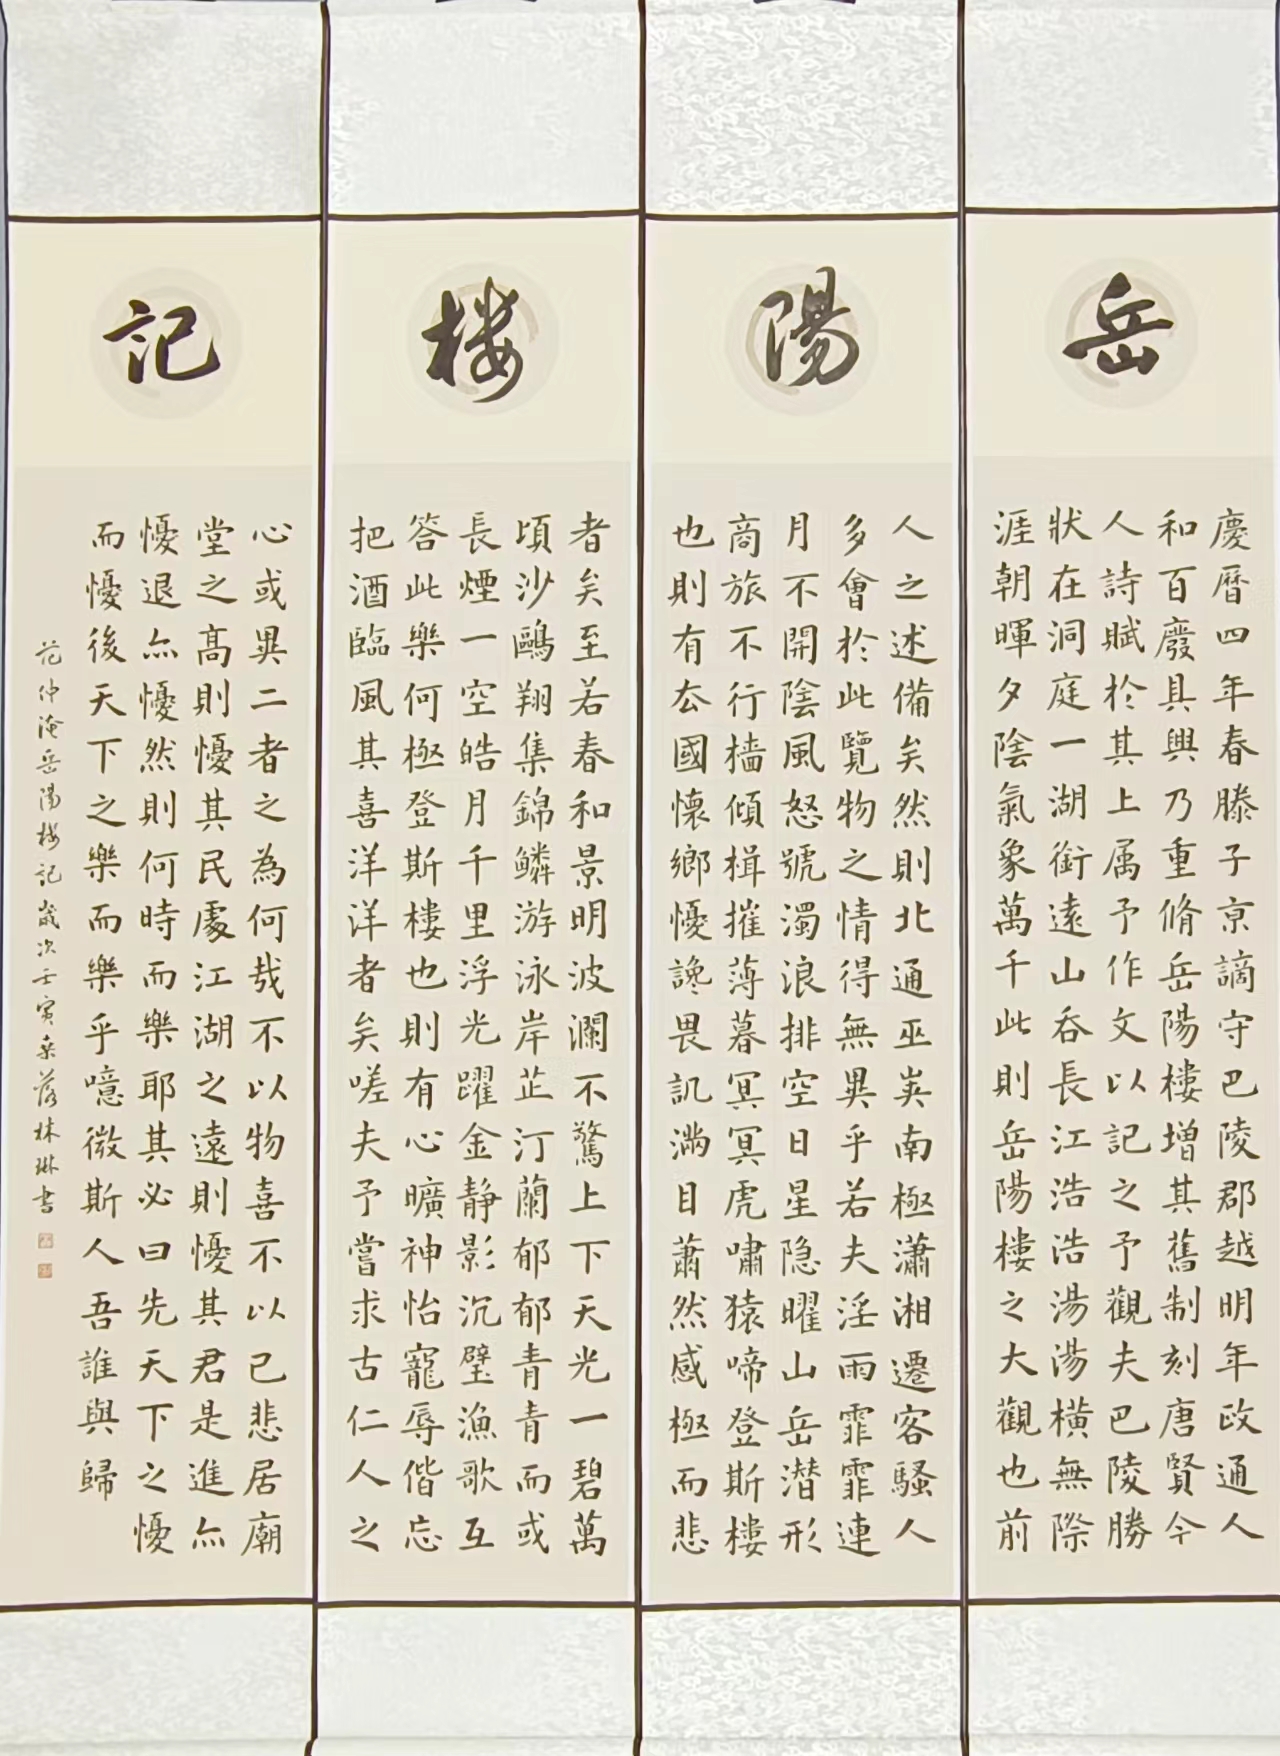 岳
慶曆四年春滕子京謫守巴陵郡越明年政通人
和百廢具興乃重脩岳陽樓增其舊制刻唐賢今
人詩賦於其上属予作文以記之予觀夫巴陵勝
狀在洞庭一湖銜遠山吞長江浩浩湯湯橫無際
涯朝暉夕陰氣象萬千此則岳陽樓之大觀也前
陽
人之述備矣然則北通巫峽南極瀟湘遷客騷人
多會於此覽物之情得無異乎若夫淫雨霏霏連
月不開陰風怒號濁浪排空日星隐曜山岳潜形
商旅不行檣傾楫摧薄暮冥冥虎嘯猿啼登斯樓
也則有去國懷鄉憂讒畏譏滿目蕭然感極而悲
楼
者矣至若春和景明波瀾不驚上下天光一碧萬
頃沙鷗翔集錦鱗游泳岸芷汀蘭郁郁青青而或
長煙一空皓月千里浮光躍金静影沉璧漁歌互
答此樂何極登斯樓也則有心曠神怡寵辱偕忘
把酒臨風其喜洋洋者矣嗟夫予嘗求古仁人之
記
心或異二者之為何哉不以物喜不以己悲居廟
堂之高則憂其民處江湖之遠則憂其君是進亦
憂退亦憂然則何時而樂耶其必曰先天下之憂
而憂後天下之樂而樂乎噫微斯人吾誰與歸
范仲淹岳陽楼記歲次壬寅桑落林琳書